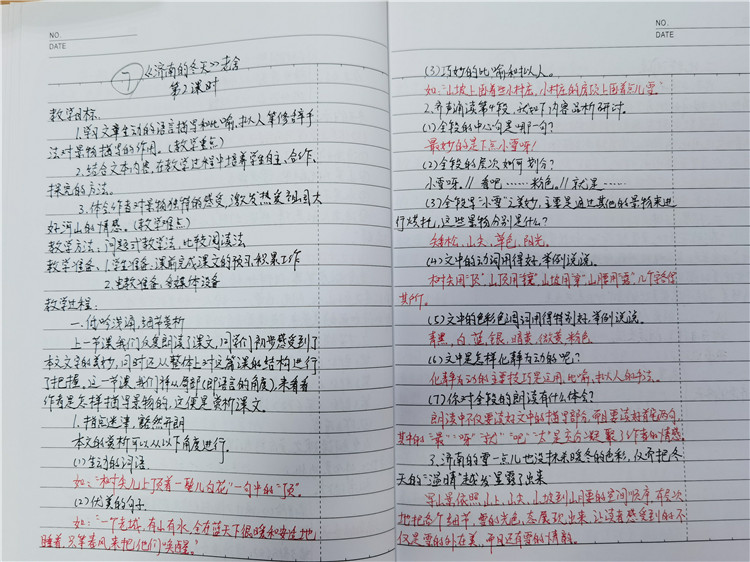 NO.
DATE
⑦《济南的冬天》老舍
第2课时
教学目标:
1.学习文章生动的语言描写和比喻、拟人等修辞手
法对景物描写的作用。(教学重点)
2.结合文本内容,在教学过程中培养学生自主、合作、
探究的方法。
3.体会作者对景物独特的感受,激发热爱祖国大
好河山的情感。(教学难点)
教学方法:问题式教学法、比较阅读法
教学准备:1.学生准备:课前完成课文的预习、积累工作
2.老教准备:多媒体设备
教学过程:
一、低吟浅诵,细节赏析
上一节课我们反复朗读了课文,同学们初步感受到了
本文文字的美妙,同时还从整体上对这篇课的结构进行
了把握,这一节课,我们将从局部(即语言的角度),来看看
作者是怎样描写景物的,这便是赏析课文。
1.指点迷津,豁然开朗
本文的赏析可以从以下角度进行。
(1)生动的词语.
如:“树尖儿上顶着一髻儿白花”一句中的“顶”。
(2)优美的句子.
如:“一个老城,有山有水,全在蓝天下很暖和安适地
睡着,只等春风来把他们唤醒。”
NO.
DATE
(3)巧妙的比喻和拟人。
如:“山坡上卧着些小村庄,小村庄的房顶上卧着点儿雪。”
2.齐声诵读第4段,就如下内容品析研讨。
(1)全段的中心句是哪一句?
最妙的是下点小雪呀!
(2)全段的层次如何划分?
小雪呀。//看吧……粉色。//就是……
(3)全段写“小雪”之美妙,主要是通过其他的景物来进
行烘托,这些景物分别是什么?
矮松、山尖、草色、阳光。
(4)文中的动词用得好,举例说说。
树尖用“顶”、山顶用“镶”、山坡用“穿”、山腰用“露”,几个字各得
其所。
(5)文中的色彩色调词用得特别好,举例说说。
青黑、白、蓝、银、暗黄、微黄、粉色
(6)文中是怎样化静为动的呢?
化静为动的主要技巧是运用比喻、拟人的手法。
(7)你对全段的朗读有什么体会?
朗读中不仅要读好文中的描写部分,而且要读好首尾两句,
其中的“最”“呀”“就”“吧”“太”是充分凝聚了作者的情感。
3.济南的雪一点儿也没抹来暖冬的色彩,仅齐把冬
天的“温晴”越发呈露了出来
写山景依照山上、山尖、山坡到山腰的空间顺序,有层次
地把各个细节,雪的光色、态展现出来,让读者感受到的不
仅是雪的外在美,而且还有雪的情韵。